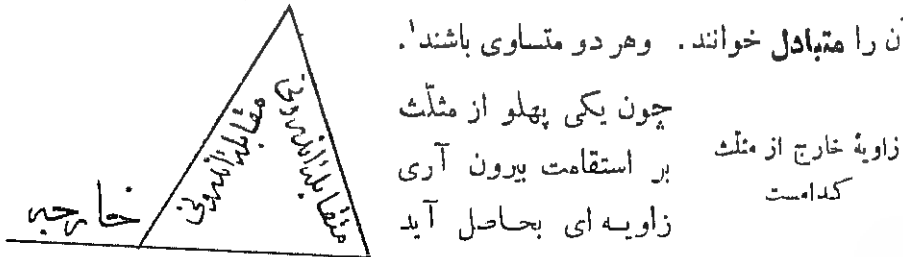 آن را متبادل خوانند. وهر دو متساوی باشند¹.
زاویهٔ خارج از مثلث
کدامست
چون یکی پهلو از مثلّث
بر استقامت بیرون آری
زاویـه ای بحـاصل آید
خارجه
مقابلهٔ اندرونی
مقابلهٔ اندرونی